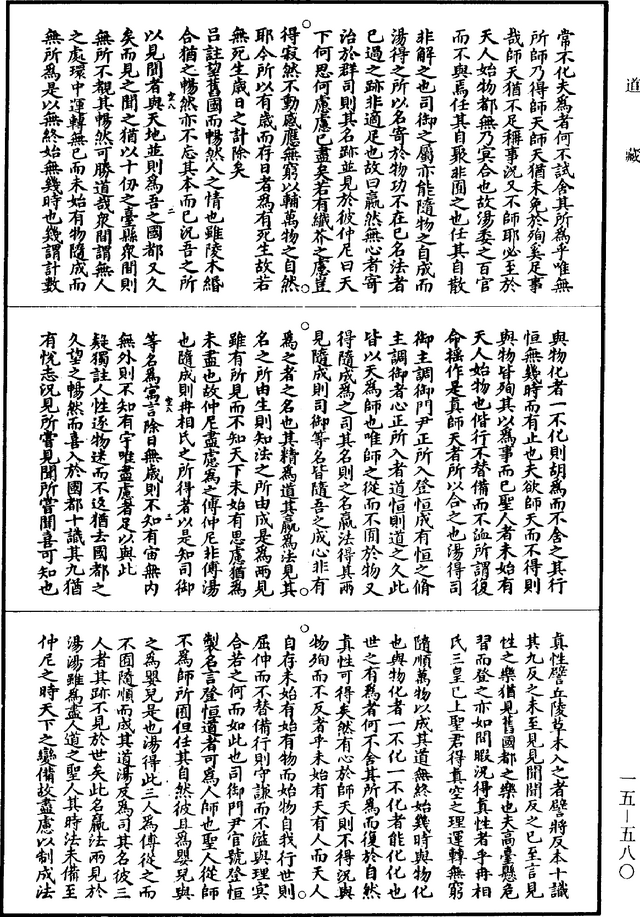 道藏
常不化夫爲者何不試舍其所爲乎唯無
所師乃得師天師天猶未免於殉奚足事
哉師天猶不足稱事況又不師耶必至於
天人始物都無乃冥合也故湯委之百官
而不與焉任其自聚非囿之也任其自散
非解之也司御之屬亦能隨物之自成而
湯得之所以名寄於物功不在已名法者
已過之跡非適足也故曰羸然無心者寄
治於群司則其名跡並見於彼仲尼曰天
下何思何慮慮已盡矣若有纖芥之慮豈
得寂然不動感應無窮以輔萬物之自然
耶今所以有歲而存日者爲有死生故若
無死生歲日之計除矣
呂註望舊國而暢然人之情也雖陵木緡
合猶之暢然亦不忘其本而已況吾之所
以見聞者與天地並則爲吾之國都又久
矣而見之聞之猶以十仞之臺縣衆間則
無所不觀其暢然可勝道哉衆間謂無人
之處環中運轉無已而未始有物隨成而
無所爲是以無終始無幾時也幾謂計數
與物化者一不化則胡爲而不舍之其行
恒無幾時而有止也夫欲師天而不得則
與物皆殉其以爲事而已聖人者未始有
天人始物也偕行不替備而不洫所謂復
命搖作是真師天者所以合之也湯得司
御主調御門尹正所入登恒成有恒之脩
主調御者心正所入者道恒則道之久此
皆以天爲師也唯師之從而不囿於物又
得隨成爲之司其名則之名羸法得其兩
見隨成則司御等名皆隨吾之成心非有
爲之者之名也其精爲道其羸爲法見其
名之所由生則知法之所由成是爲兩見
雖有所見而不知天下未始有思慮猶爲
未盡也故仲尼盡慮爲之傅仲尼非傅湯
也隨成則冉相氏之所得者以是知司御
等名爲寓言除日無歲則不知有宙無內
無外則不知有宇唯盡慮者足以與此
疑獨註人性逐物迷而不返猶去國都之
久望之暢然而喜入於國都十識其九猶
有忻志況見所嘗見聞所嘗聞喜可知也
真性譬丘陵草木入之者譬將反本十識
其九反之未至見見聞聞反之已至言見
性之樂猶見舊國都之樂也夫高臺懸危
習而登之亦如閒暇況得真性者乎冉相
氏三皇已上聖君得真空之理運轉無窮
隨順萬物以成其道無終始幾時與物化
也與物化者一不化一不化者能化化也
世之有爲者何不舍其所爲而復於自然
真性可得矣然有心於師天則不得況與
物殉而不反者乎未始有天有人而天人
自存未始有始有物而始物自我行世則
屈伸而不替備行則守謙而不溢與理冥
合若之何而如此也司御門尹官號登恒
製名言登恒道者可爲人師也聖人從師
不爲師所囿但任其自然彼且爲嬰兒與
之爲嬰兒是也湯得此三人爲傅從之而
不囿隨順而成其道湯反爲司其名彼三
人者其跡不見於世矣此名羸法兩見於
湯湯雖爲盡人道之聖人其時法未備至
仲尼之時天下之變備故盡慮以制成法
一五-五八〇